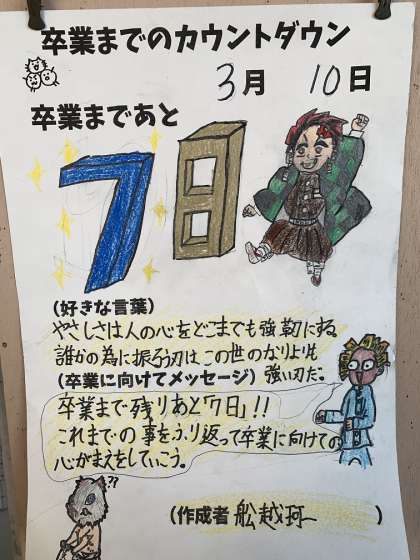 卒業までのカウントダウン
3月 10日
卒業まであと
7日
(好きな言葉)
やさしさは人の心をどこまでも強靭にする
誰かの為に振るう刃はこの世のなりよりも
強い刃だ。
(卒業に向けてメッセージ)
卒業まで残りあと「7日」!!
これまでの事をふり返って卒業に向けての
心がまえをしていこう。
??
(作成者 舩越珂一 )